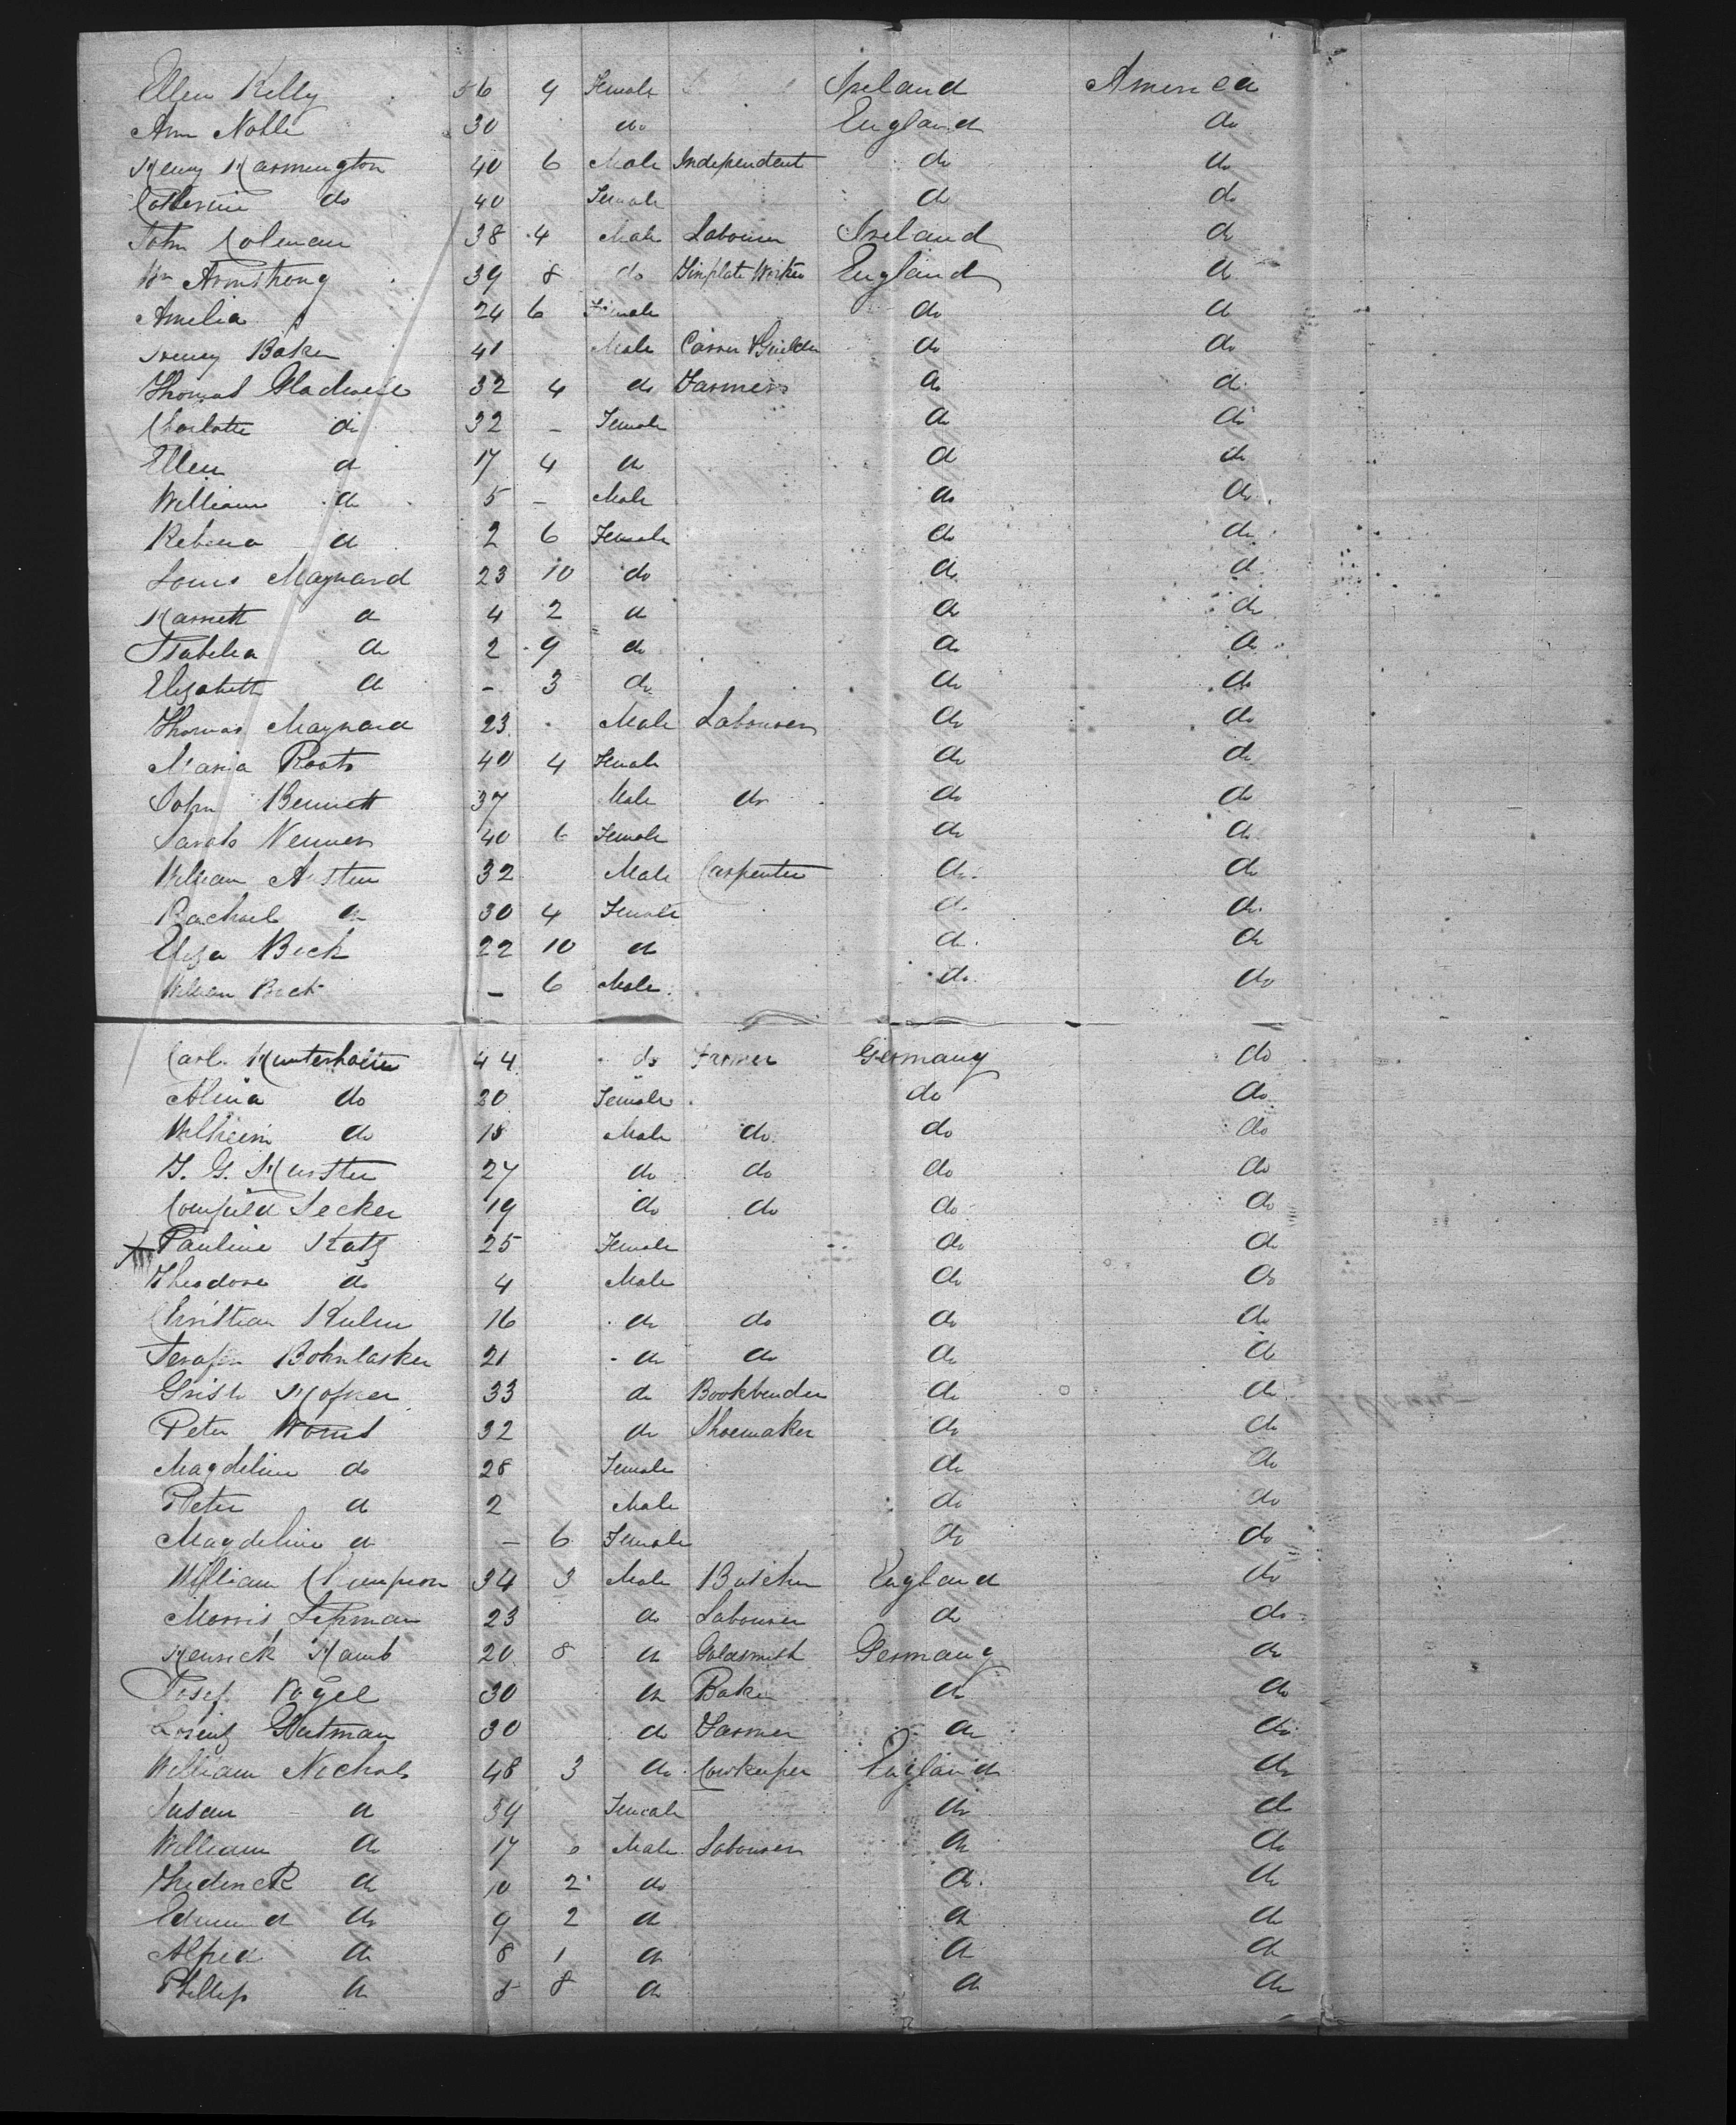 Ellen Kelly 56 9 Female Ireland America
Ann Noble 30 do England do
Henry Harmington 40 6 Male Independent do do
Catherine do 40 Female do do
John Coleman 38 4 Male Labourer Ireland do
Wm Armstrong 39 8 do Tinplate Worker England do
Amelia 24 6 Female do do
Henry Baker 41 Male Carver & Guilder do do
Thomas Gladwell 32 4 do Farmer do do
Charlotte do 32 - Female do do
Ellen do 17 4 do do do
William do 5 - Male do do
Rebecca do 2 6 Female do do
Louis Maynard 23 10 do do do
Harriett do 4 2 do do do
Isabella do 2 9 do do do
Elizabeth do - 3 do do do
Thomas Maynard 23 Male Labourer do do
Maria Roots 40 4 Female do do
John Bennett 37 Male do do do
Sarah Venner 40 6 Female do do
William Austen 32 Male Carpenter do do
Rachael do 30 4 Female do do
Eliza Beck 22 10 do do do
William Beck - 6 Male do do
Carl 44 do Farmer Germany do
Alina do 20 Female do do
Wilheim do 18 Male do do do
27 do do do do
19 do do do do
Pauline Katz 25 Female do do
Theodore do 4 Male do do
Christian 16 do do do do
21 do do do do
Hofner 33 do Bookbender do do
Peter Worms 32 do Shoemaker do do
Magdeline do 28 Female do do
Peter do 2 Male do do
Magdeline do - 6 Female do do
William Thompson 34 3 Male Butcher England do
Morris Lipman 23 do Labourer do do
Henrick Hamb 20 8 do Goldsmith Germany do
Josef Vogel 30 do Baker do do
Lorentz Gutman 30 do Farmer do do
William Nichols 48 3 do Cowkeeper England do
Susan do 39 Female do do
William do 17 6 Male Labourer do do
Frederick do 10 2 do do do
Edmund do 9 2 do do do
Alfred do 8 1 do do do
Phillip do 5 8 do do do